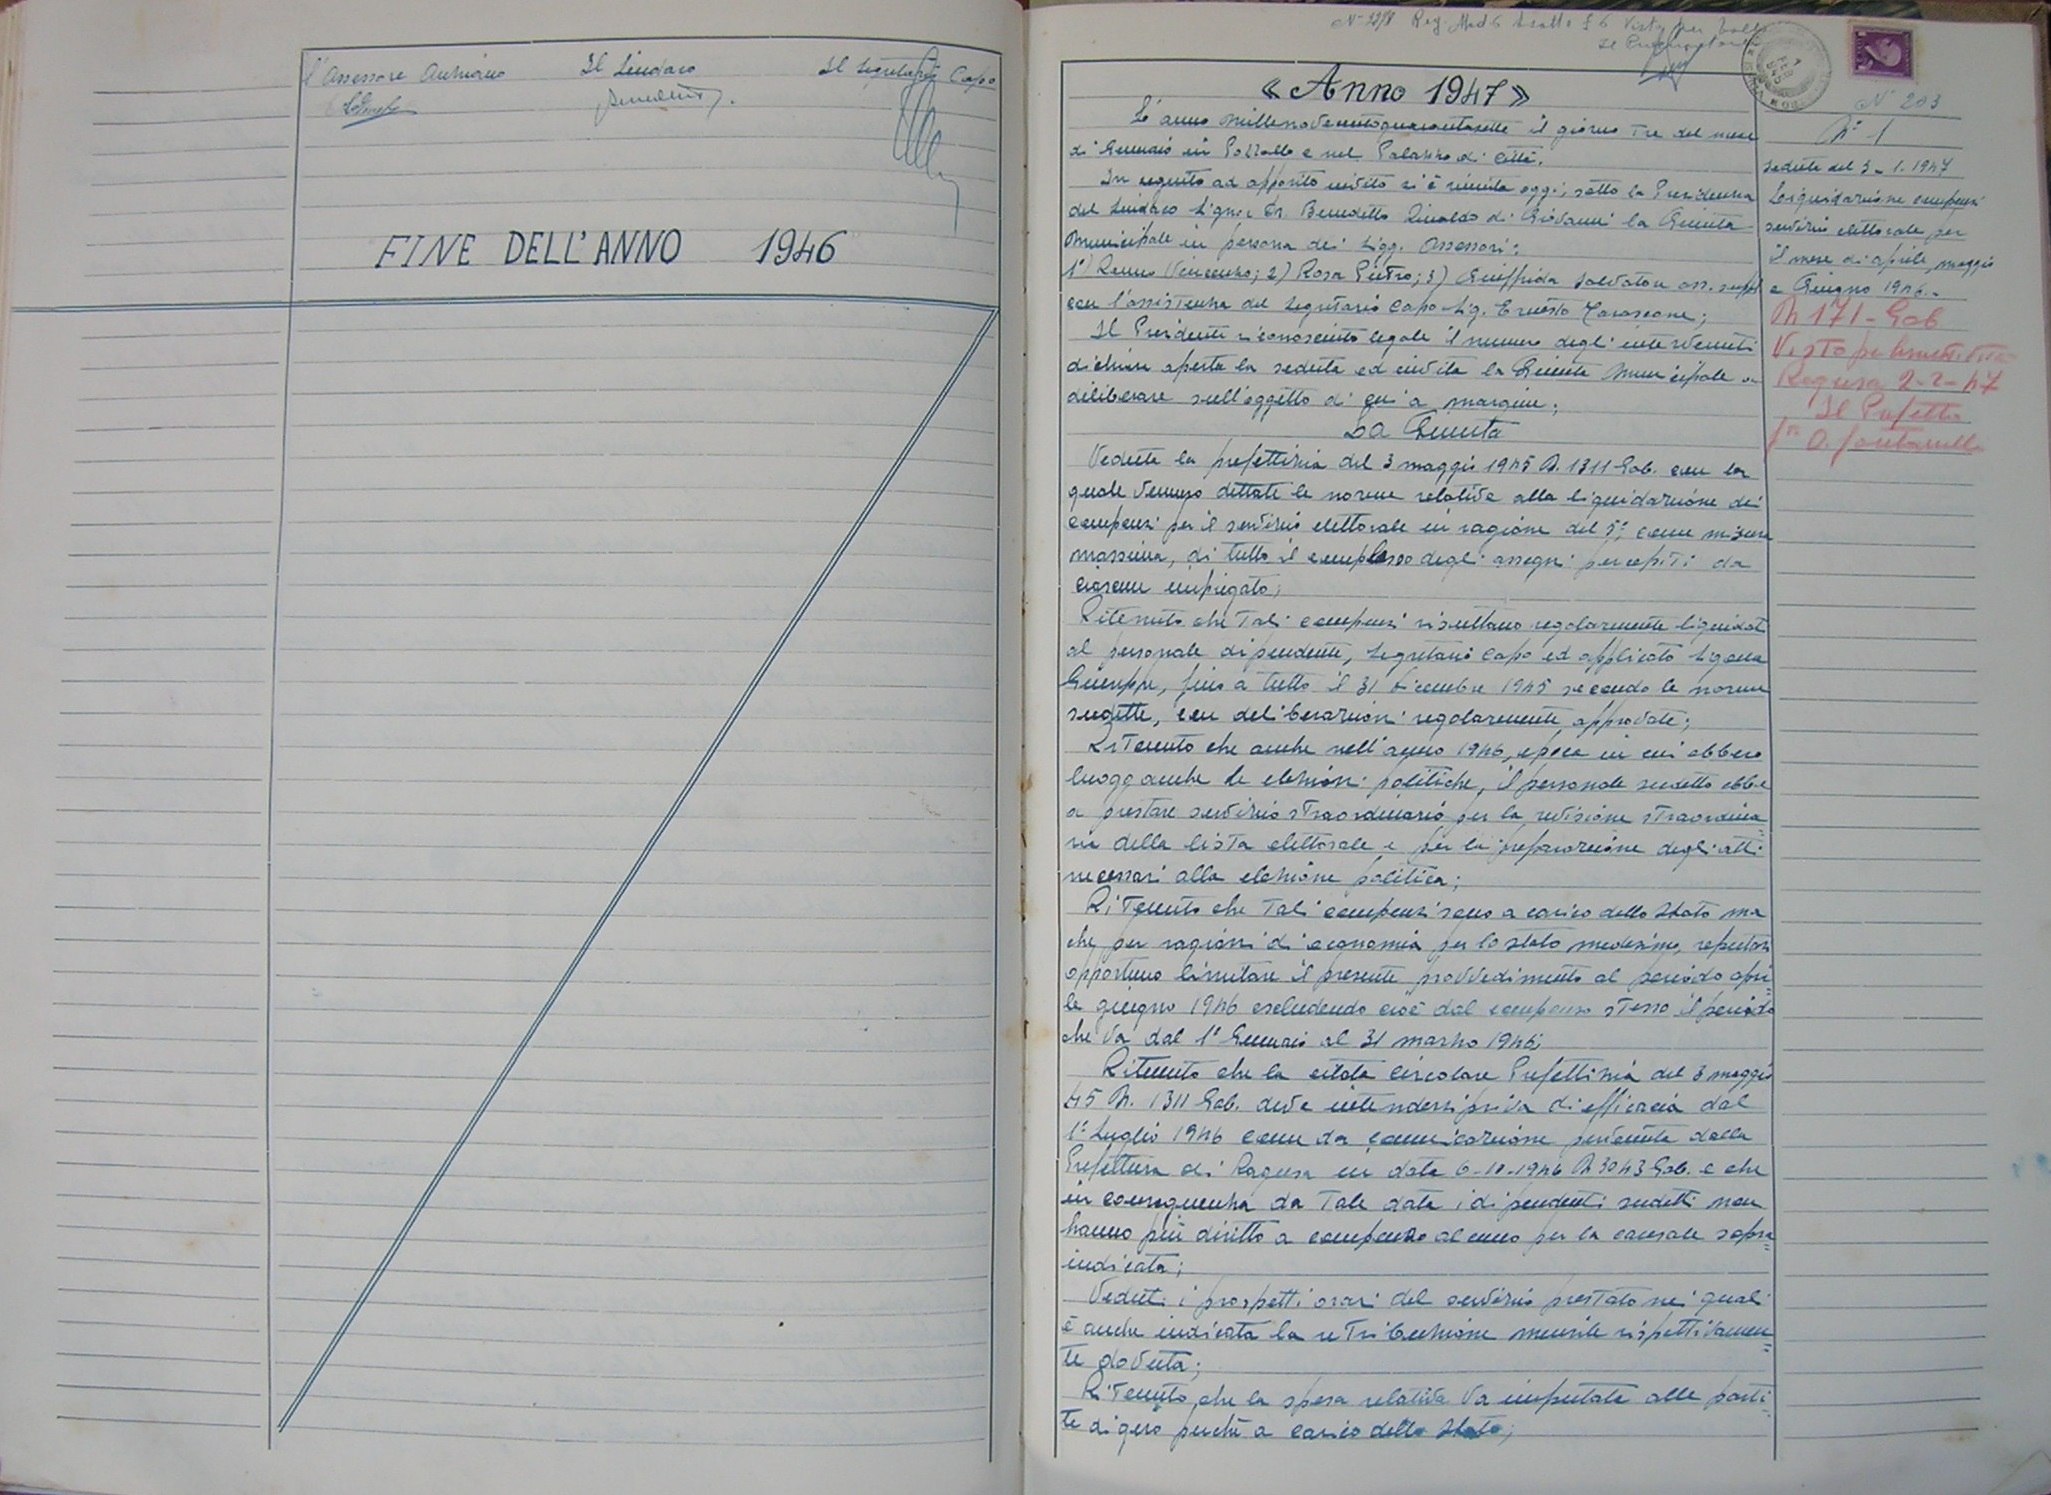 l'Assessore Anziano Il Sindaco Il Segretario Capo
FINE DELL'ANNO 1946
« Anno 1947 »
L'anno millenovecentoquarantasette il giorno Tre del mese
di Gennaio in Pozzallo e nel Palazzo di Città.
In seguito ad apposito invito si è riunita oggi, sotto la Presidenza
del Sindaco Signor Dr. Benedetto Rinaldo di Giovanni la Giunta
Municipale in persona dei Sigg. Assessori:
1°) Vincenzo; 2) Rosa Pietro; 3) Giuffrida Salvatore ass. suppl
con l'assistenza del Segretario Capo Sig. Ernesto
Il Presidente riconosciuto legale il numero degli intervenuti
dichiara aperta la seduta ed invita la Giunta Municipale a
deliberare sull'oggetto di cui a margine;
La Giunta
Veduta la prefettizia del 3 maggio 1945 N. 1311 Gab. con la
quale vennero dettate le norme relative alla liquidazione dei
compensi per il servizio elettorale in ragione del come misura
massima, di tutto il complesso degli assegni percepiti da
ciascun impiegato;
Ritenuto che Tali compensi risultano regolarmente liquidati
al personale dipendente, Segretario Capo ed applicato
Giuseppe, fino a tutto il 31 Dicembre 1945 secondo le norme
sudette, con deliberazioni regolarmente approvate;
Ritenuto che anche nell'anno 1946, epoca in cui ebbero
luogo anche le elezioni politiche, il personale sudetto ebbe
a prestare servizio straordinario per la revisione straordina=
ria della lista elettorale e per la preparazione degli atti
necessari alla elezione politica;
Ritenuto che Tali compensi sono a carico dello Stato ma
che per ragioni di economia per lo stato medesimo, reputasi
opportuno limitare il presente provvedimento al periodo apri=
le giugno 1946 escludendo cioè dal compenso stesso il periodo
che va dal 1° Gennaio al 31 marzo 1946;
Ritenuto che la citata circolare Prefettizia del 3 maggio
45 N. 1311 Gab. deve intendersi priva di efficacia dal
1° Luglio 1946 come da comunicazione pervenuta dalla
Prefettura di Ragusa in data 6-10-1946 N 3043 Gab. e che
in conseguenza da Tale data i dipendenti sudetti non
hanno più diritto a compenso alcuno per la causale sopra=
indicata;
Veduti i prospetti orari del servizio prestato nei quali
è anche indicata la retribuzione mensile rispettivamen=
te dovuta;
Ritenuto che la spesa relativa va imputata alle parti=
te di giro perchè a carico dello Stato;
N° 203
N° 1
seduta del 3-1-1947
Liquidazione compensi
servizio elettorale per
il mese di aprile, maggio
e Giugno 1946.-
N 171 - Gab
Visto
Ragusa 2-2-47
Il Prefetto